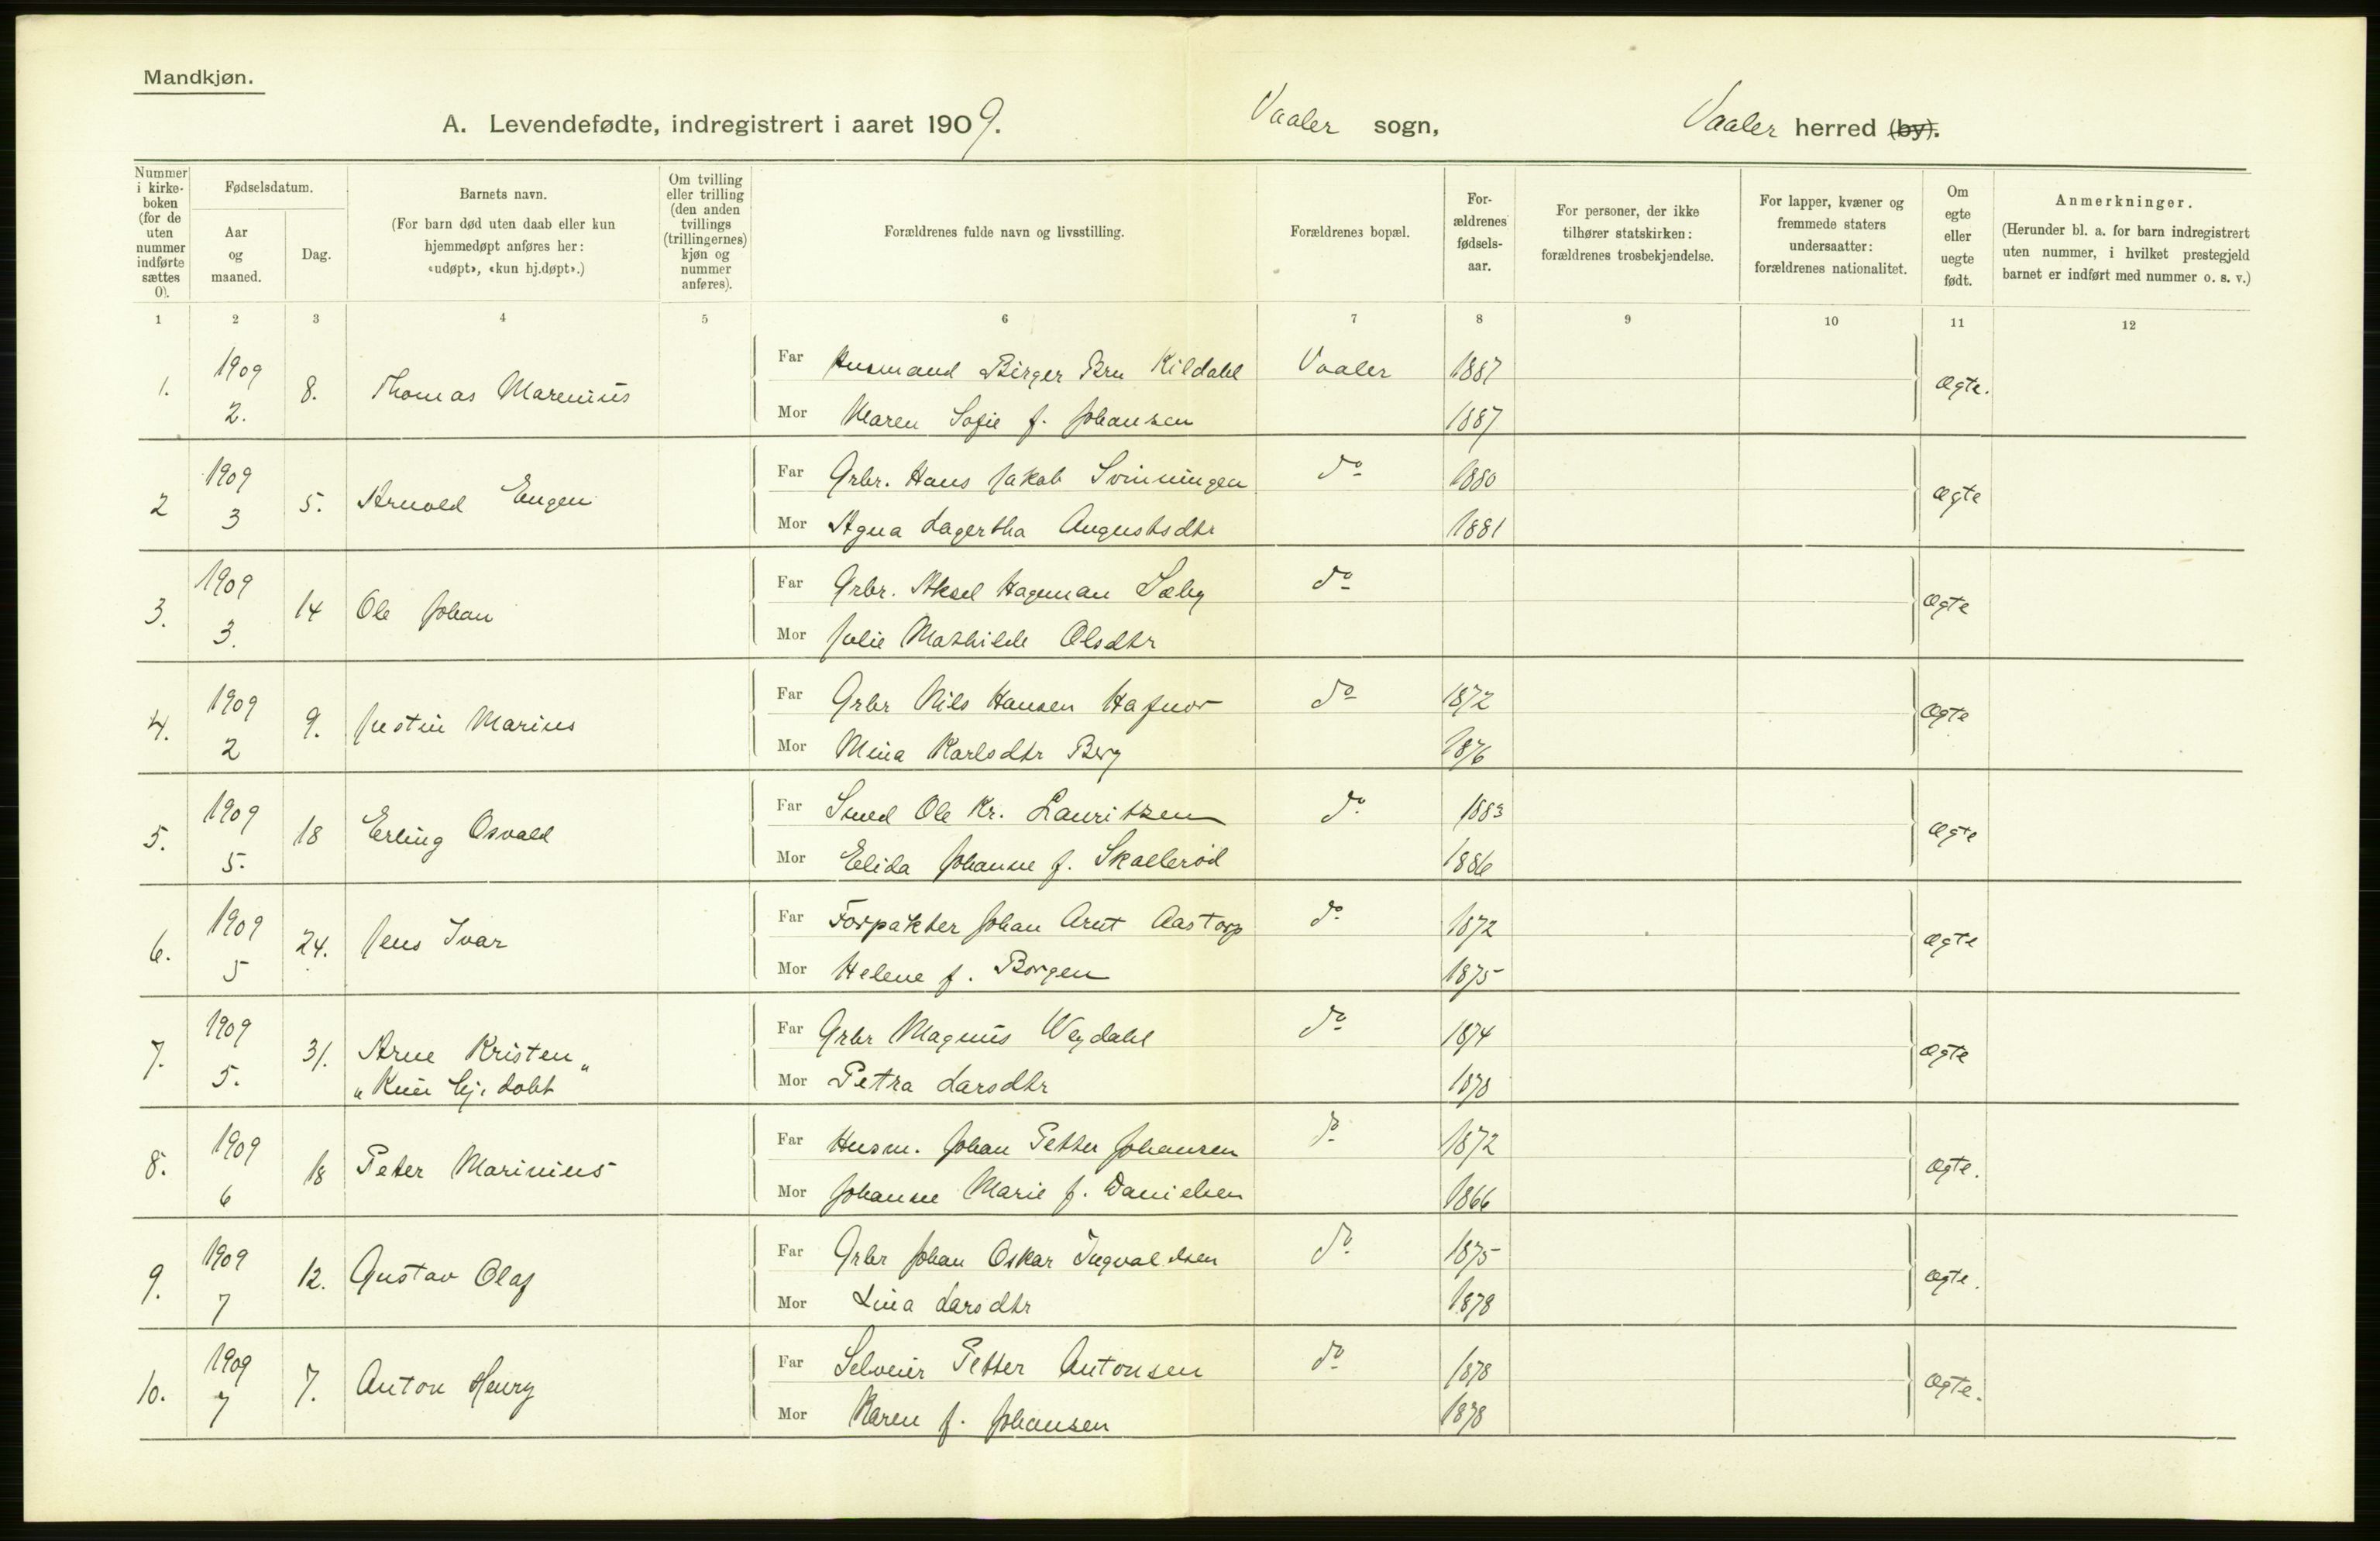 Mandkjøn.
A. Levendefødte, indregistrert i aaret 1909. Vaaler sogn, Vaaler herred (by).
Nummer i kirkeboken (for de uten nummer indførte sættes 0).
Fødselsdatum.
Aar og maaned.
Dag.
Barnets navn.
(For barn død uten daab eller kun hjemmedøpt anføres her: «udøpt», «kun hj.døpt».)
Om tvilling eller trilling (den anden tvillings (trillingernes) kjøn og nummer anføres).
Forældrenes fulde navn og livsstilling.
Forældrenes bopæl.
Forældrenes fødselsaar.
For personer, der ikke tilhører statskirken: forældrenes trosbekjendelse.
For lapper, kvæner og fremmede staters undersaatter: forældrenes nationalitet.
Om egte eller uegte født.
Anmerkninger.
(Herunder bl. a. for barn indregistrert uten nummer, i hvilket prestegjeld barnet er indført med nummer o. s. v.)
1 2 3 4 5 6 7 8 9 10 11 12
1. 1909 2. 8. Thomas Marenius Far Husmand Birger Bru Kildahl Vaaler 1887 Ægte.
Mor Maren Sofie f. Johansen 1887
2 1909 3 5. Arnold Eugen Far Grbr. Hans Jakob Svinningen do 1880 Ægte
Mor Agna Lagertha Augustsdtr 1881
3. 1909 3. 14 Ole Johan Far Grbr. Aksel Hageman Sæby do Ægte
Mor Julie Mathilde Olsdtr
4. 1909 2 9. Justin Marius Far Grbr Nils Hansen Hafnor do 1872 Ægte
Mor Mina Karlsdtr Berg 1876
5. 1909 5. 18 Erling Osvald Far Smed Ole Kr. Lauritzen do 1883 Ægte
Mor Elida Johanne f. Skallerød 1886
6. 1909 5 24. Jens Ivar Far Forpakter Johan Arnt Aastorp do 1872 Ægte
Mor Helene f. Borgen 1875
7. 1909 5. 31. Arne Kristen Far Grbr Magnus Wegdahl do 1874 Ægte
"Kun hj. døbt" Mor Petra Larsdtr 1878
8. 1909 6 18 Peter Marinius Far Husm. Johan Petter Johansen do 1872 Ægte.
Mor Johanne Marie f. Danielsen 1866
9. 1909 7 12. Gustav Olaf Far Grbr Johan Oskar Ingvaldsen do 1875 Ægte.
Mor Lina Larsdtr 1878
10. 1909 7 7. Anton Henry Far Selveier Petter Antonsen do 1878 Ægte.
Mor Karen f. Johansen 1878